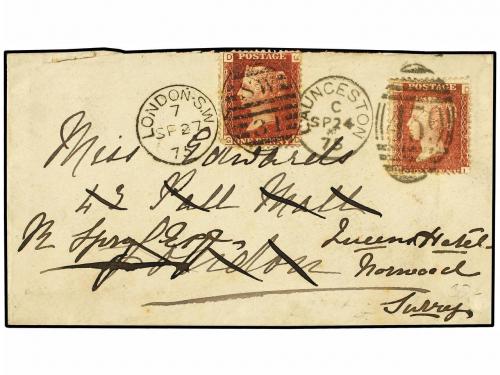 LONDON·S.W
7
SP27
75
D POSTAGE
S.W
LAUNCESTON
C
SP24
75
POSTAGE
Miss Edwards
43 Pall Mall
London
Queens Hotel
Norwood
Surrey